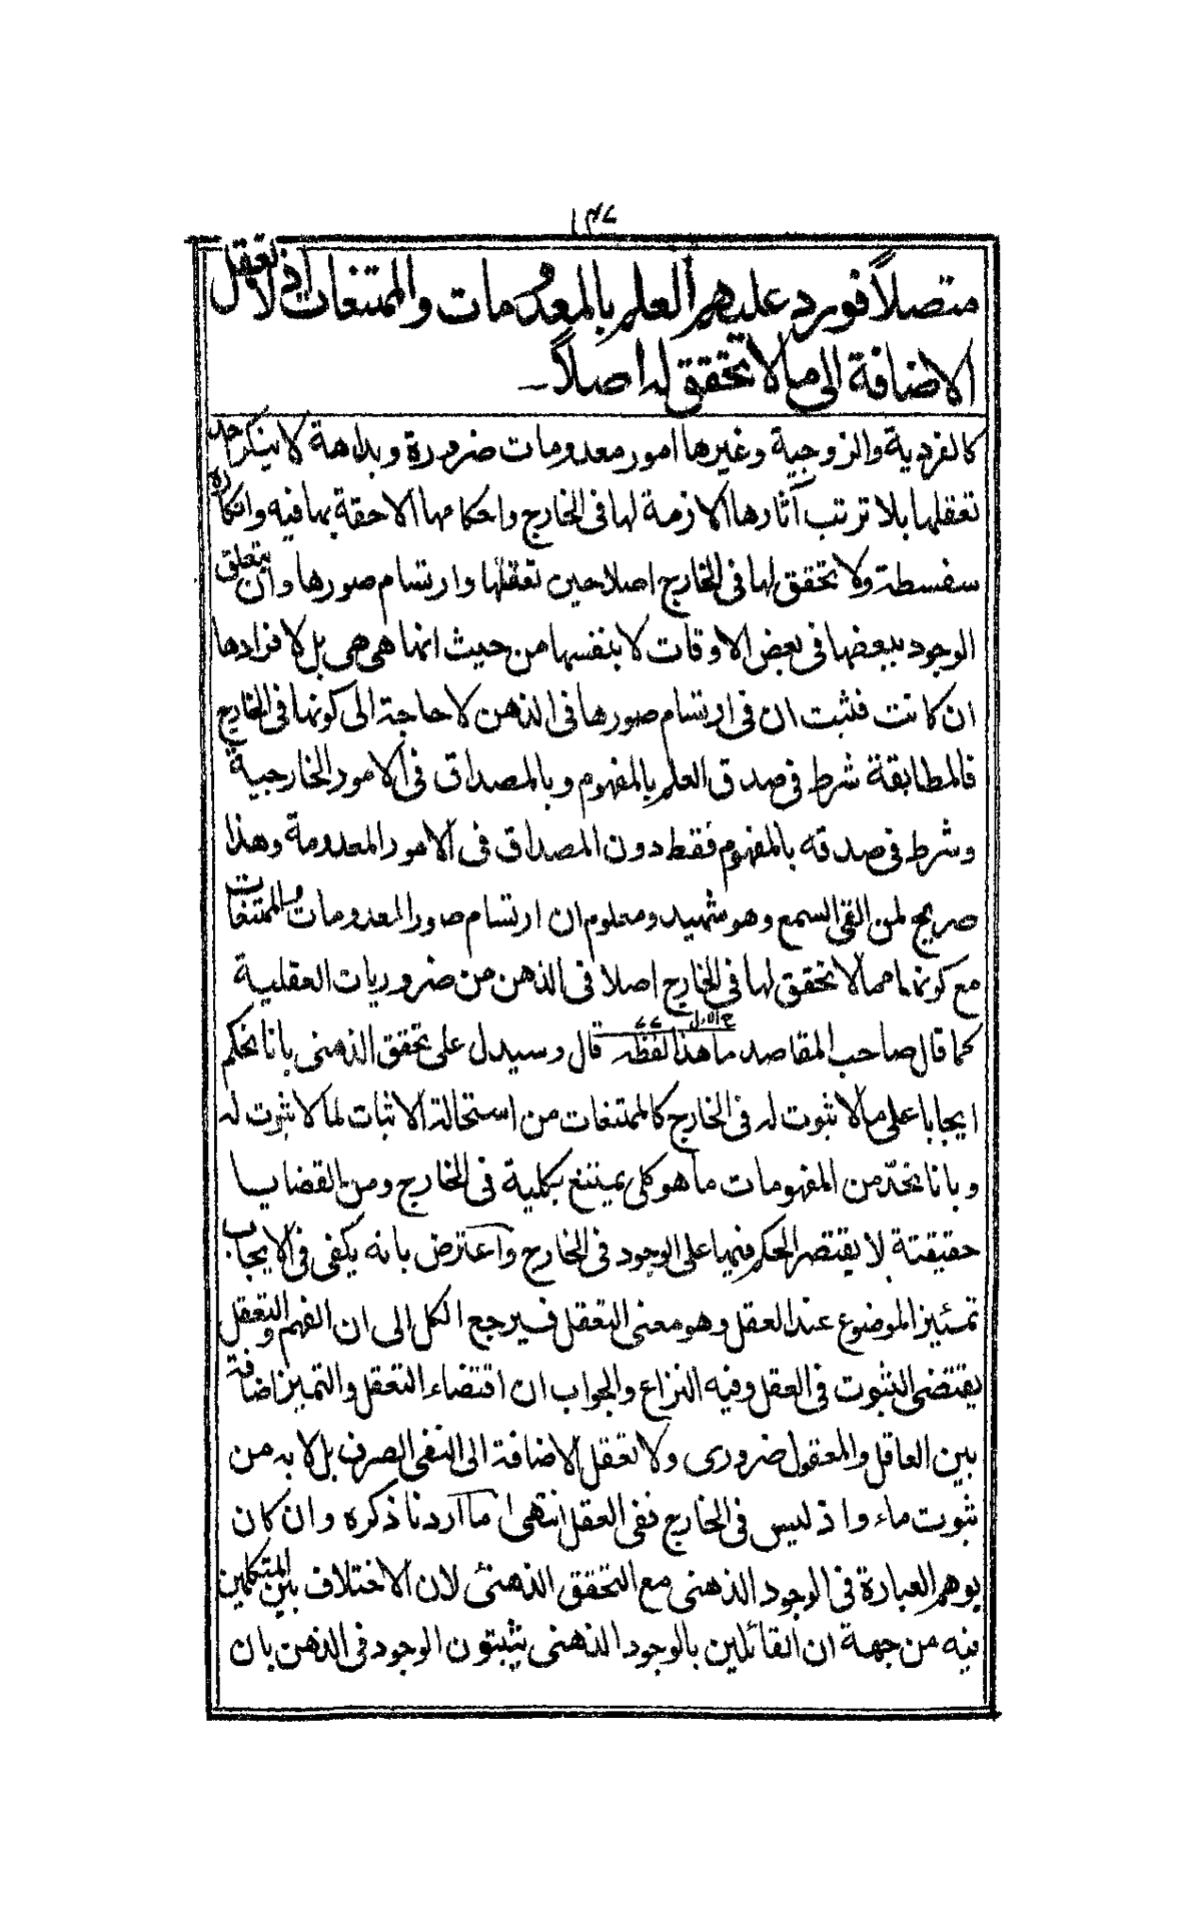 ١٣٧
متصلاً فورد عليهم العلم بالمعدومات والممتنعات اذ لا تعقل
الاضافة الى ما لا تحقق له اصلاً ـ
كالفردية والزوجية وغيرها امور معدومات ضرورة وبداهة لا ينكر احد
تعقلها بلا ترتب آثارها الازمة لها فى الخارج واحكامها الاحقة بها فيه وانكاره
سفسطة ولا تحقق لها فى الخارج اصلا حين تعقلها وارتسام صورها وان يتعلق
الوجود ببعضها فى بعض الاوقات لا بنفسها من حيث انها هى هى بل لافرادها
ان كانت فثبت ان فى ارتسام صورها فى الذهن لا حاجة الى كونها فى الخارج
فالمطابقة شرط فى صدق العلم بالمفهوم وبالمصداق فى الامور الخارجية
وشرط فى صدقه بالمفهوم فقط دون المصداق فى الامور المعدومة وهذا
صريح لمن القى السمع وهو شهيد ومعلوم ان ارتسام صور المعدومات والممتنعات
مع كونها مما لا تحقق لها فى الخارج اصلا فى الذهن من ضروريات العقلية
كما قال صاحب المقاصد ما هذا لفظه قال وسيدل على تحقق الذهنى بانا نحكم
ايجابا على ما لا ثبوت له فى الخارج كالممتنعات من استحالة الاثبات لما لا ثبوت له
وبانا نجد من المفهومات ما هو كلى يمتنع بكلية فى الخارج ومن القضايا
حقيقتة لا يقتصر الحكم فيها على الوجود فى الخارج واعترض بانه يكفى فى الايجاب
تمئيز الموضوع عند العقل وهو معنى التعقل فيرجع الكل الى ان الفهم والتعقل
يقتضى الثبوت فى العقل وفيه النزاع والجواب ان اقتضاء التعقل والتميز اضافة
بين العاقل والمعقول ضرورى ولا تعقل الاضافة الى النفى الصرف بل لا بد من
ثبوت ماء واذ ليس فى الخارج ففى العقل انتهى ما اردنا ذكره وان كان
يوهم العبارة فى الوجود الذهنى مع التحقق الذهنى لان الاختلاف بين المتكلمين
فيه من جهة ان القائلين بالوجود الذهنى يثبتون الوجود فى الذهن بان